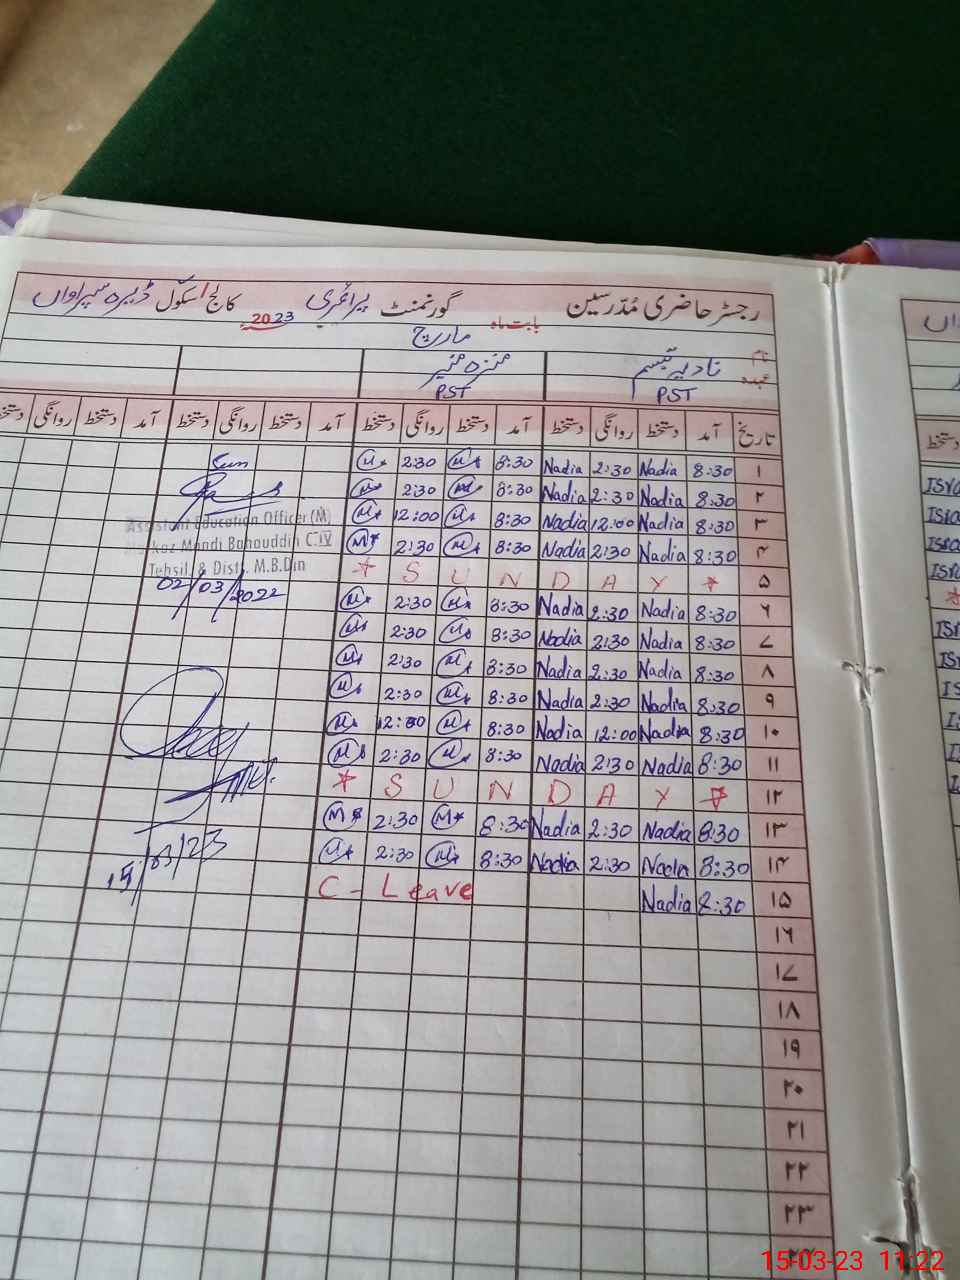 رجسٹر حاضری مُدّرسین گورنمنٹ پرائمری کالج اسکول ڈیرہ سپراواں
بابت ماہ مارچ 2023
نام نادیہ تبسم منزہ منیر
عہدہ PST PST
تاریخ آمد دستخط روانگی دستخط آمد دستخط روانگی دستخط آمد دستخط روانگی دستخط آمد دستخط روانگی دستخط
۱ 8:30 Nadia 2:30 Nadia 8:30 2:30
۲ 8:30 Nadia 2:30 Nadia 8:30 2:30
۳ 8:30 Nadia 12:00 Nadia 8:30 12:00
۴ 8:30 Nadia 2:30 Nadia 8:30 2:30
۵ * S U N D A Y *
۶ 8:30 Nadia 2:30 Nadia 8:30 2:30
۷ 8:30 Nadia 2:30 Nadia 8:30 2:30
۸ 8:30 Nadia 2:30 Nadia 8:30 2:30
۹ 8:30 Nadia 2:30 Nadia 8:30 2:30
۱۰ 8:30 Nadia 12:00 Nadia 8:30 12:00
۱۱ 8:30 Nadia 2:30 Nadia 8:30 2:30
۱۲ * S U N D A Y *
۱۳ 8:30 Nadia 2:30 Nadia 8:30 2:30
۱۴ 8:30 Nadia 2:30 Nadia 8:30 2:30
۱۵ 8:30 Nadia C - Leave
۱۶
۱۷
۱۸
۱۹
۲۰
۲۱
۲۲
۲۳
Assistant Education Officer (M)
Mandi Bahauddin C-IV
Tehsil & Distt. M.B.Din
02/03/2022
15/03/23
دستخط
15-03-23 11:22